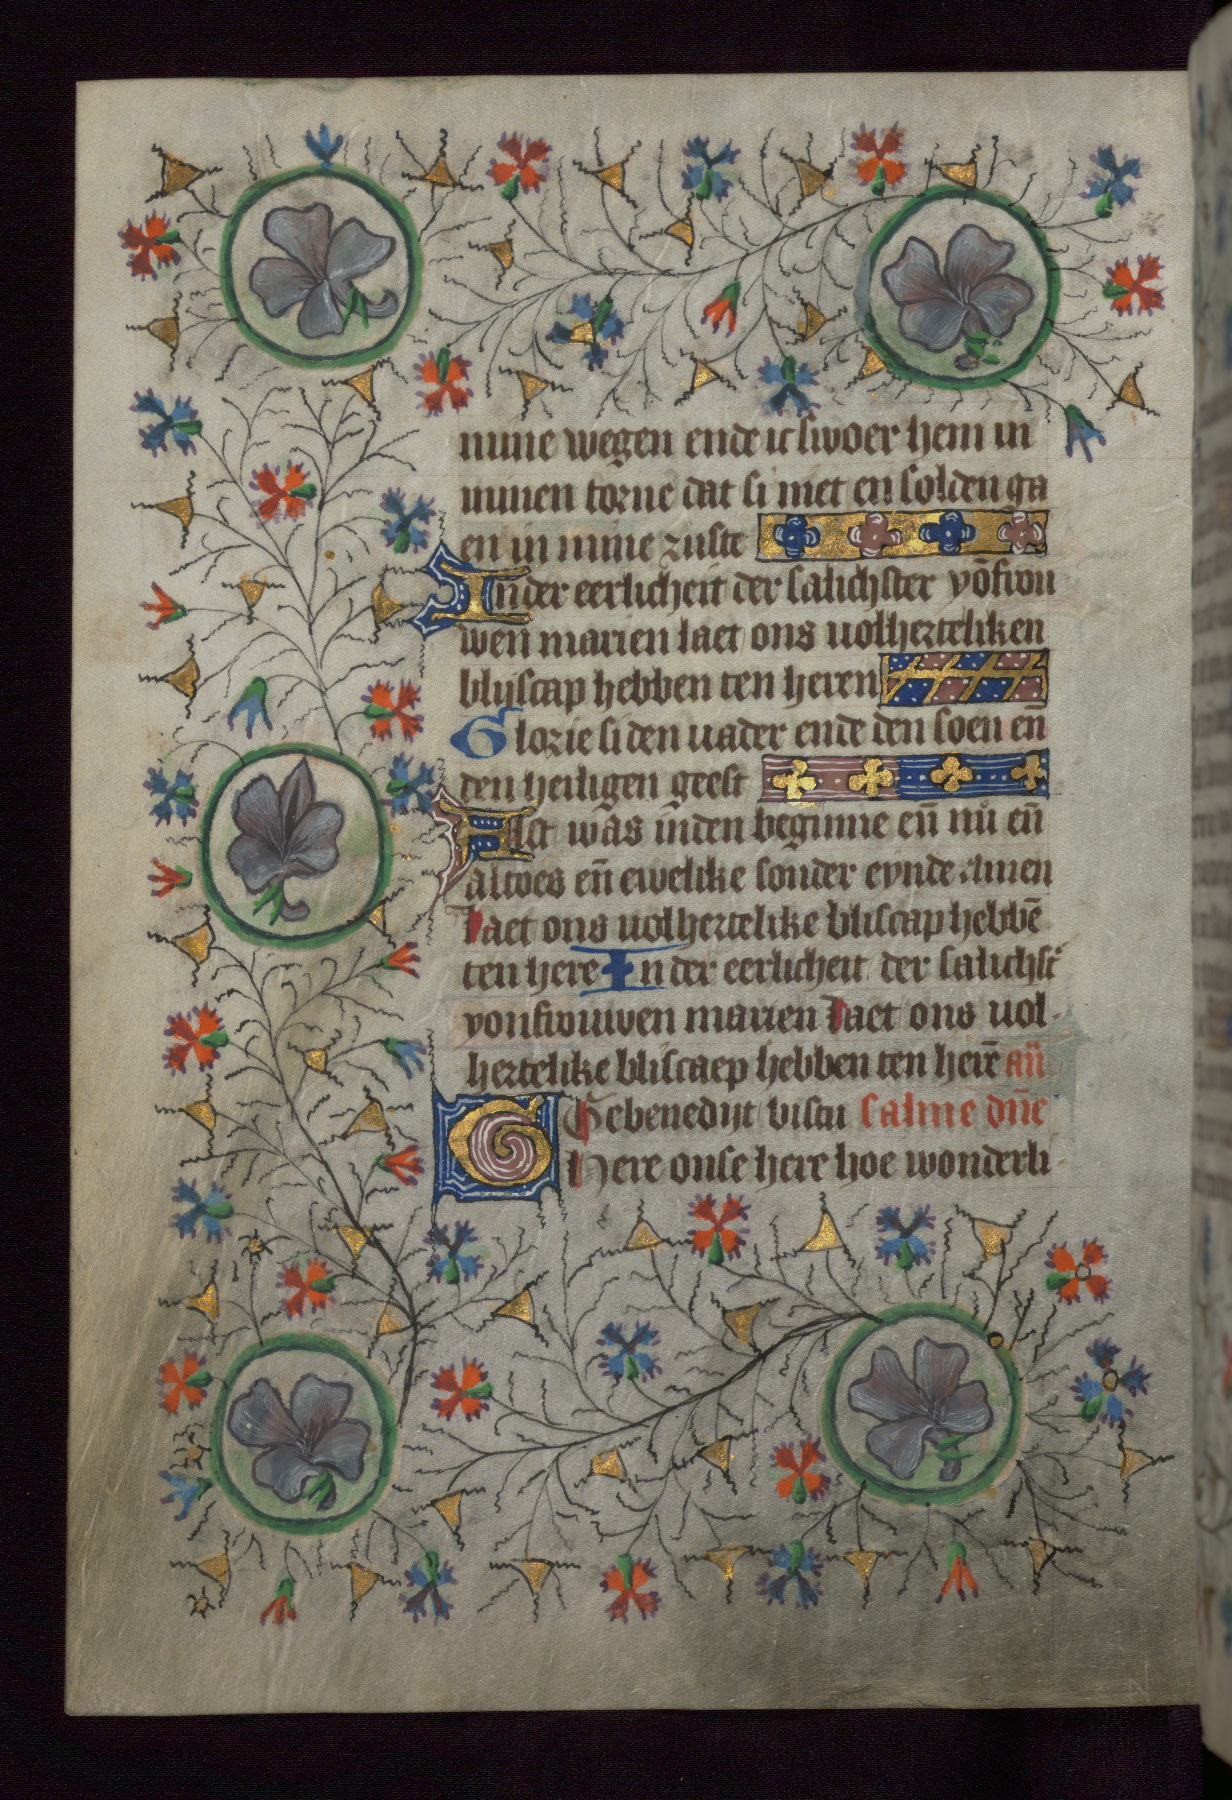 mine wegen ende ic swoer hem in
minen torne dat si niet en solden ga
en in mine ruste
In der eerlicheit der salichster yōfrou
wen marien laet ons uolherteliken
blijscap hebben ten heren
Glorie si den uader ende den soen eñ
den heiligen geest
Alst was inden beginne eñ nu eñ
altoes eñ ewelike sonder eynde amen
Laet ons uolhertelike bliscap hebbē
ten here In der eerlicheit der salichst
yonfrouwen marien Laet ons uol
hertelike bliscaep hebben ten herē an̄
Gebenedijt bistu salme dn̄e
Here onse here hoe wonderli